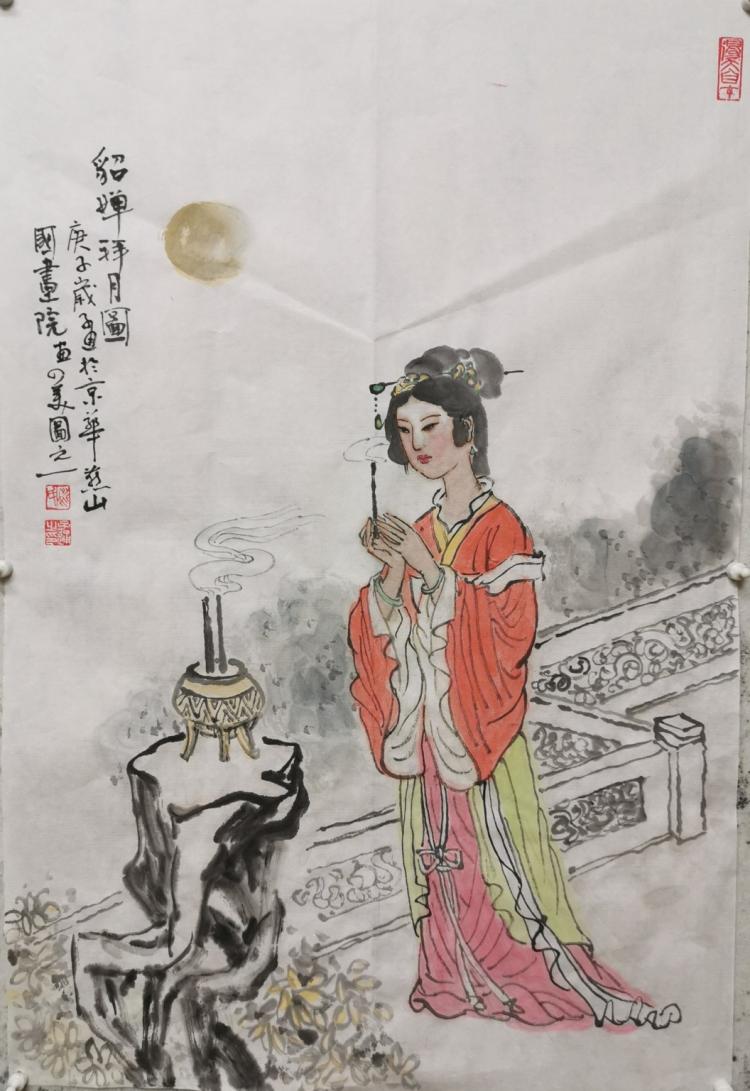 貂蝉拜月圖
庚子歲子畫於京華燕山
國畫院畫四美圖之一